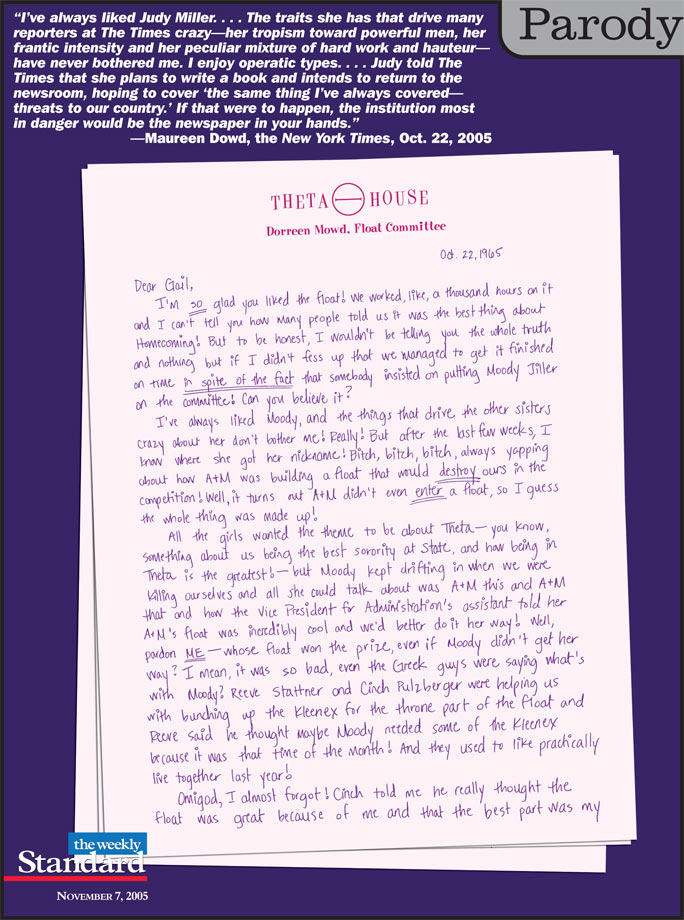 Parody
“I’ve always liked Judy Miller. . . . The traits she has that drive many
reporters at The Times crazy—her tropism toward powerful men, her
frantic intensity and her peculiar mixture of hard work and hauteur—
have never bothered me. I enjoy operatic types. . . . Judy told The
Times that she plans to write a book and intends to return to the
newsroom, hoping to cover ‘the same thing I’ve always covered—
threats to our country.’ If that were to happen, the institution most
in danger would be the newspaper in your hands.”
—Maureen Dowd, the New York Times, Oct. 22, 2005
THETA HOUSE
Dorreen Mowd, Float Committee
Oct. 22, 1965
Dear Gail,
I'm so glad you liked the float! We worked, like, a thousand hours on it
and I can't tell you how many people told us it was the best thing about
Homecoming! But to be honest, I wouldn't be telling you the whole truth
and nothing but if I didn't fess up that we managed to get it finished
on time in spite of the fact that somebody insisted on putting Moody Jiller
on the committee! Can you believe it?
I've always liked Moody, and the things that drive the other sisters
crazy about her don't bother me! Really! But after the last few weeks, I
know where she got her nickname! Bitch, bitch, bitch, always yapping
about how A+M was building a float that would destroy ours in the
competition! Well, it turns out A+M didn't even enter a float, so I guess
the whole thing was made up!
All the girls wanted the theme to be about Theta—you know,
something about us being the best sorority at State, and how being in
Theta is the greatest!—but Moody kept drifting in when we were
killing ourselves and all she could talk about was A+M this and A+M
that and how the Vice President for Administration's assistant told her
A+M's float was incredibly cool and we'd better do it her way! Well,
pardon ME—whose float won the prize, even if Moody didn't get her
way? I mean, it was so bad, even the Greek guys were saying what's
with Moody? Reeve Stattner and Cinch Pulzberger were helping us
with bunching up the Kleenex for the throne part of the float and
Reeve said he thought maybe Moody needed some of the Kleenex
because it was that time of the month! And they used to like practically
live together last year!
Omigod, I almost forgot! Cinch told me he really thought the
float was great because of me and that the best part was my
the weekly
Standard
NOVEMBER 7, 2005